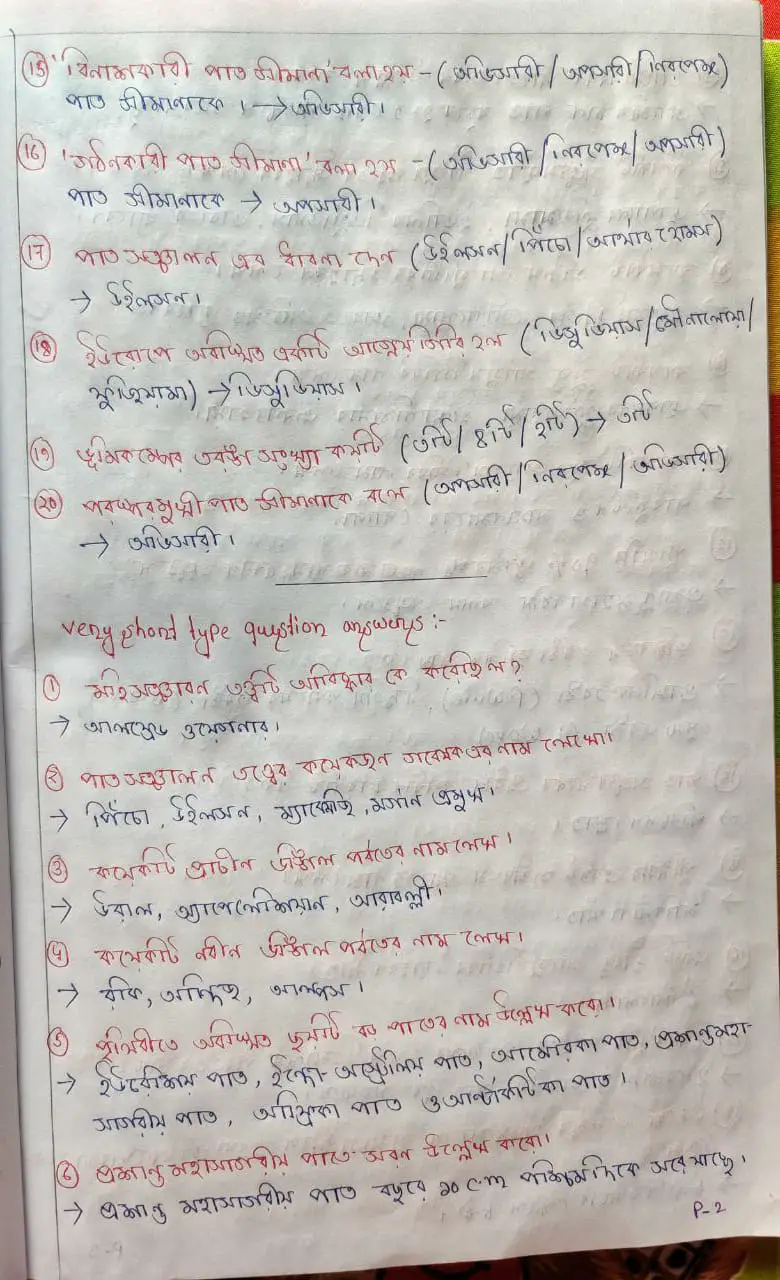 (15) 'বিনাশকারী পাত সীমানা' বলা হয় - (অভিসারী / অপসারী / নিরপেক্ষ)
পাত সীমানাকে। → অভিসারী।
(16) 'গঠনকারী পাত সীমানা' বলা হয় - (অভিসারী / নিরপেক্ষ / অপসারী)
পাত সীমানাকে → অপসারী।
(17) পাত সঞ্চালন এর ধারনা দেন (উইলসন / পিঁচো / আর্থার হোমস)
→ উইলসন।
(18) ইউরোপে অবস্থিত একটি আগ্নেয়গিরি হল (ভিসুভিয়াস / মৌনালোয়া /
ফুজিয়ামা) → ভিসুভিয়াস।
(19) ভূমিকম্পের তরঙ্গ সংখ্যা কয়টি (৩টি / ৪টি / ২টি) → ৩টি
(20) পরস্পরমুখী পাত সীমানাকে বলে (অপসারী / নিরপেক্ষ / অভিসারী)
→ অভিসারী।
very short type question answers :-
① মহিসঞ্চারন তত্ত্বটি আবিষ্কার কে করেছিল?
→ আলফ্রেড ওয়েগনার।
② পাত সঞ্চালন তত্ত্বের কয়েকজন গবেষক এর নাম লেখো।
→ পিঁচো, উইলসন, ম্যাকেঞ্জি, মর্গান প্রমুখ।
③ কয়েকটি প্রাচীন ভঙ্গিল পর্বতের নাম লেখ।
→ উরাল, অ্যাপেলেশিয়ান, আরাবল্লী।
④ কয়েকটি নবীন ভঙ্গিল পর্বতের নাম লেখ।
→ রকি, আন্দিজ, আল্পস।
⑤ পৃথিবীতে অবস্থিত ছয়টি বড় পাতের নাম উল্লেখ করো।
→ ইউরেশিয় পাত, ইন্দো-অস্ট্রেলিয় পাত, আমেরিকা পাত, প্রশান্ত মহা-
সাগরীয় পাত, আফ্রিকা পাত ও আন্টার্কটিকা পাত।
⑥ প্রশান্ত মহাসাগরীয় পাতে সরন উল্লেখ করো।
→ প্রশান্ত মহাসাগরীয় পাত বছরে ১০ c.m পশ্চিমদিকে সরে যাচ্ছে।
P-2